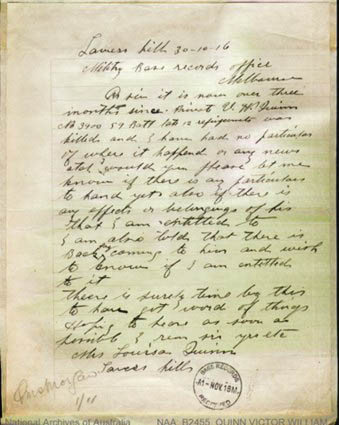 Lavers hill 30-10-16
Military Base records office
Melbourne
Dr sir it is now over three
months since Privert V. W. Quinn
No 3900 59 Batt late 12 refigments was
killed and I have had no particulars
of where it happend or any news
atal would you please let me
know if there is any particulars
to hand yet also if there is
any effects or belongings of his
that I am entitled to
I am also told that there is
Back coming to him and wish
to know if I am entitled
to it
there is surely time by this
to have got word of things
Hoping to heare as soon as
possible I remain yrs etc
Mrs Louisa Quinn
Lavers hill
BASE RECORDS
1-NOV 1916
RECEIVED
National Archives of Australia NAA: B2455, QUINN VICTOR WILLIAM